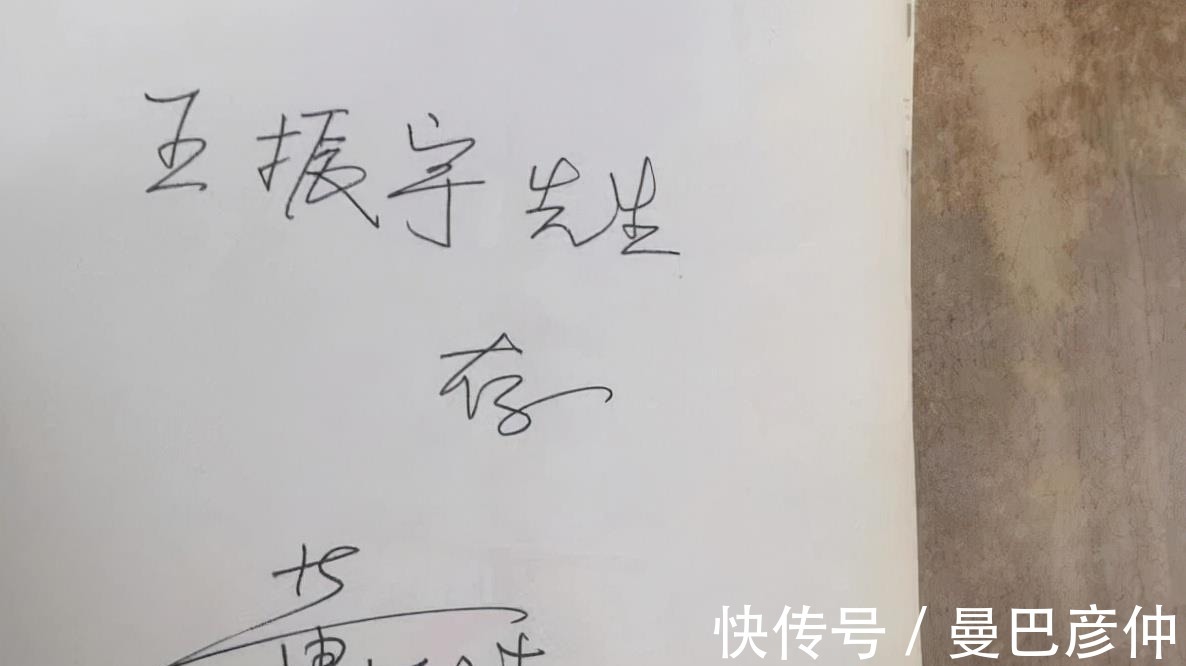 王振宇先生
存
快传号 / 曼巴彦仲